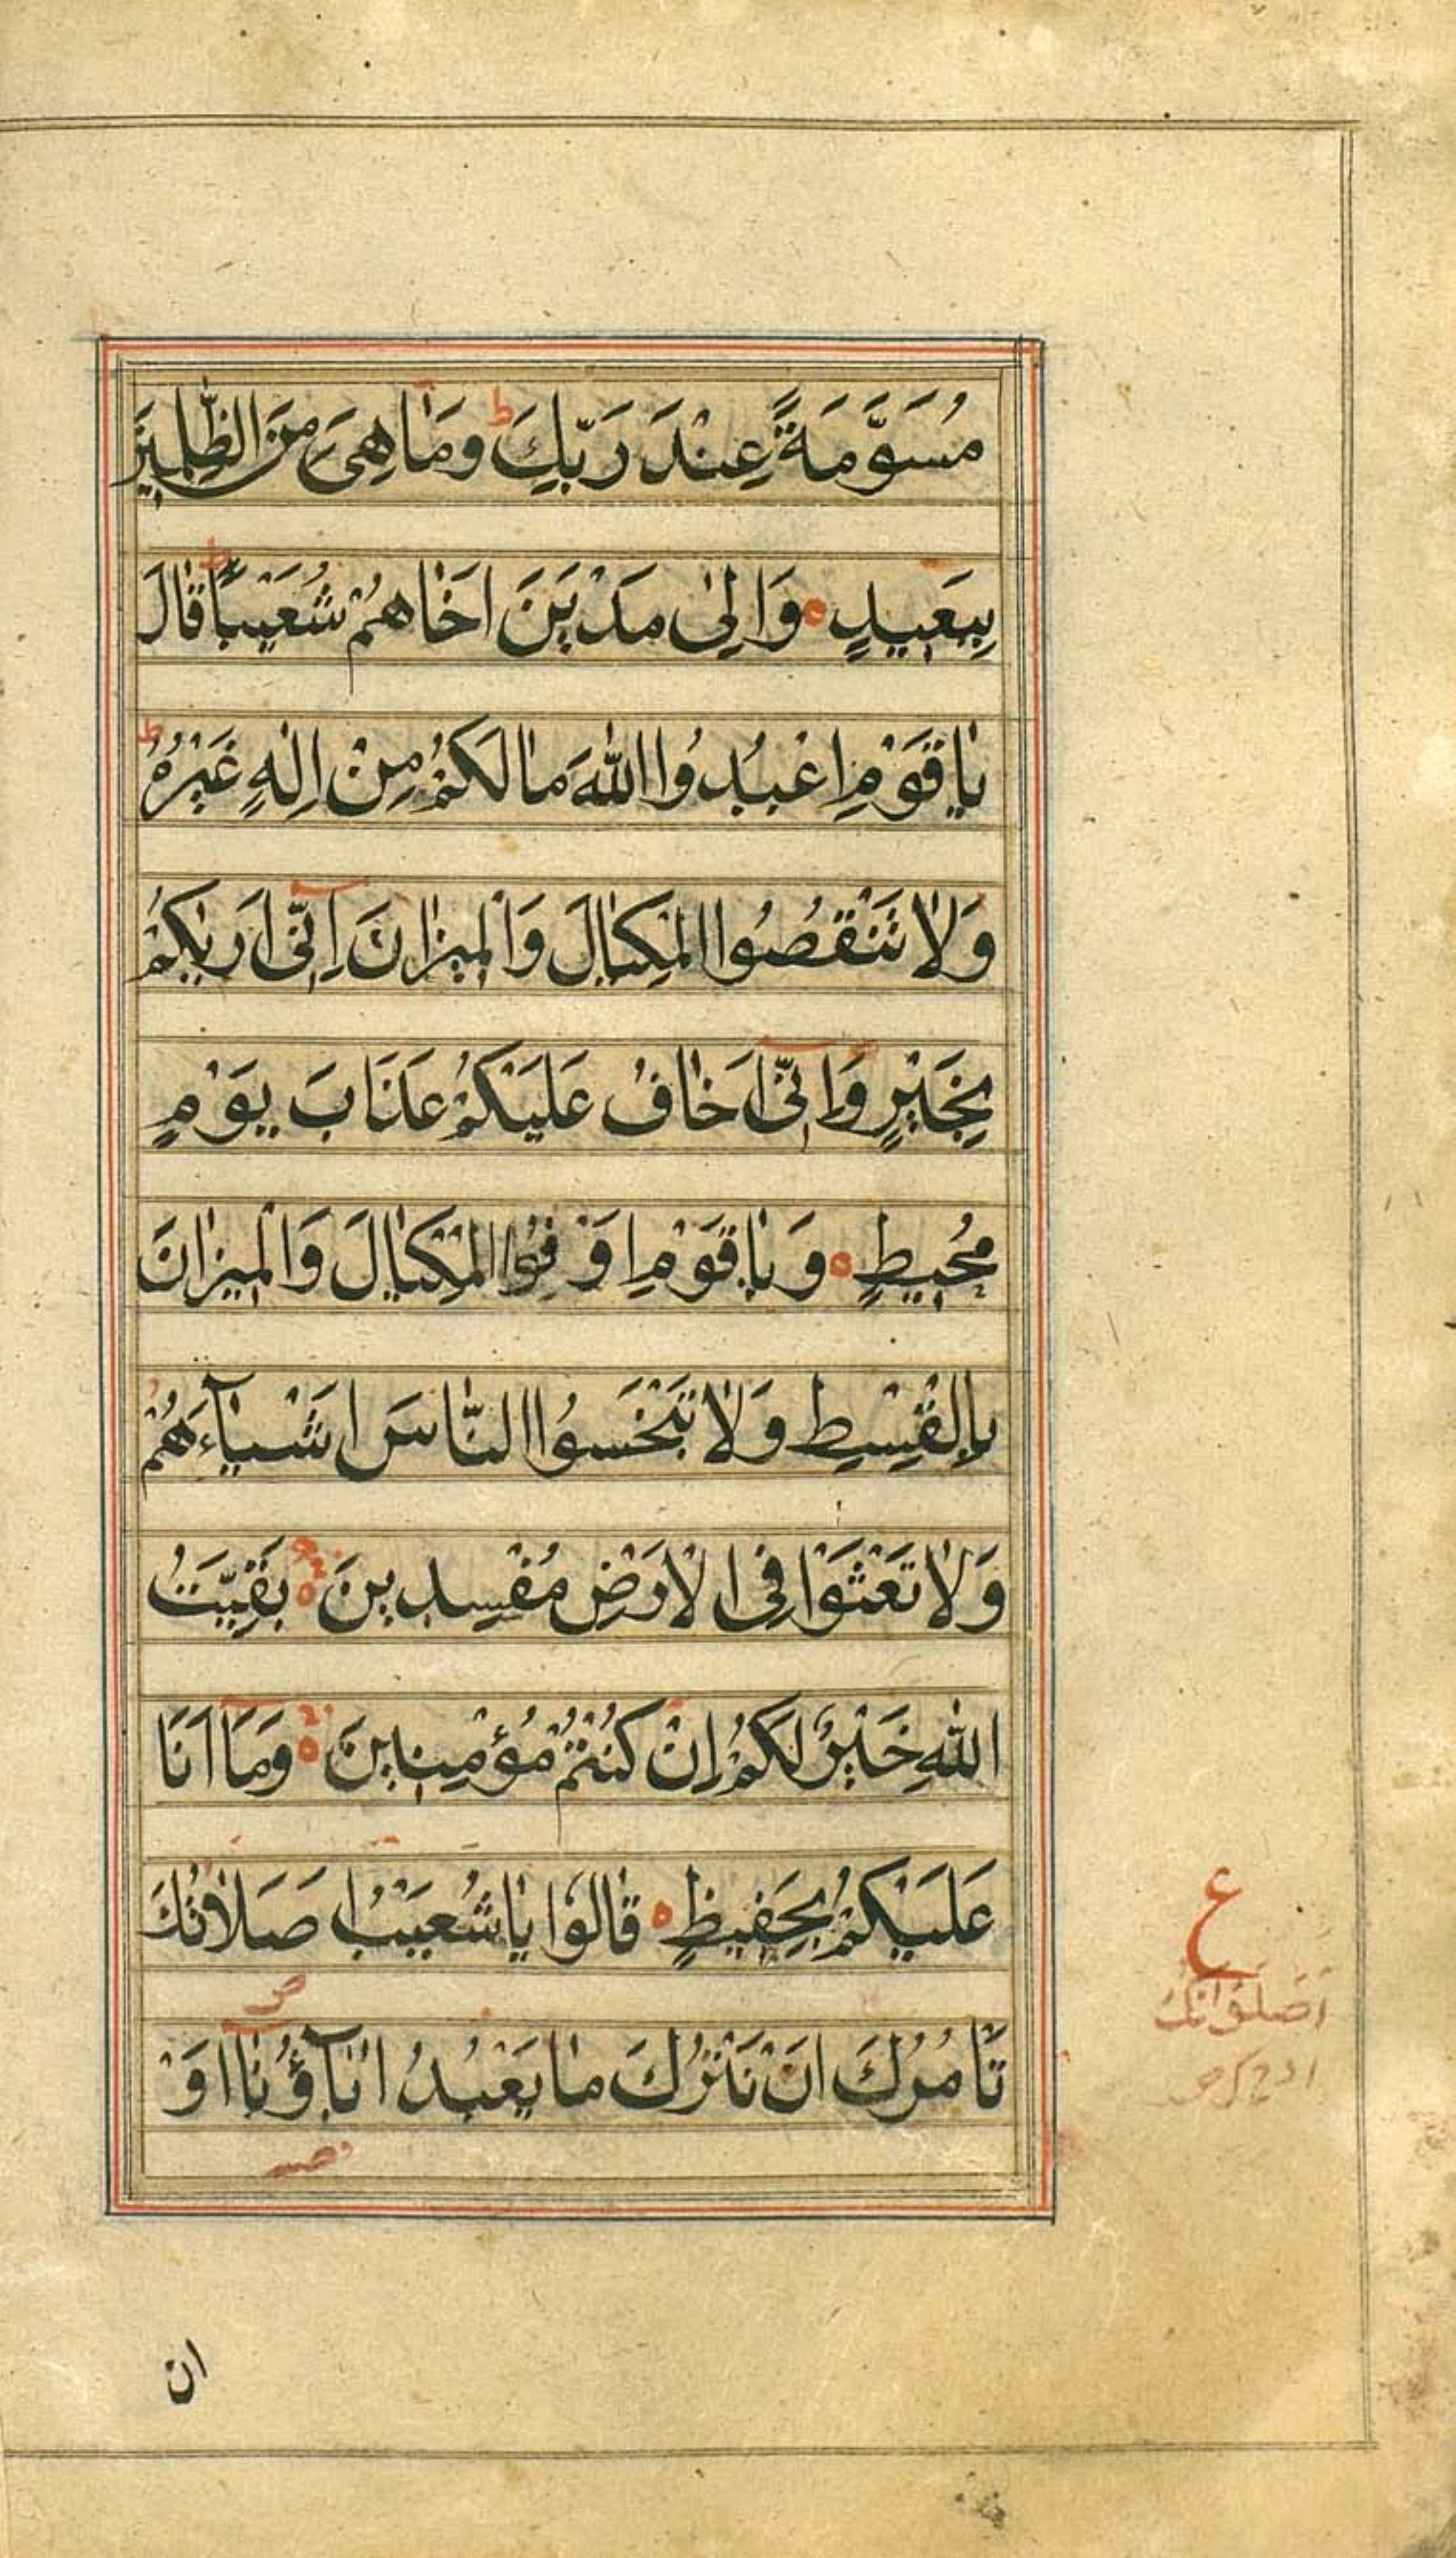 مُسَوَّمَةً عِنْدَ رَبِّكَ ط وَمَا هِىَ مِنَ الظّٰلِمِينَ
بِبَعِيدٍ ه وَاِلىٰ مَدْيَنَ اَخَاهُمْ شُعَيْبًا ط قَالَ
يَا قَوْمِ اعْبُدُوا اللّٰهَ مَا لَكُمْ مِنْ اِلٰهٍ غَيْرُهُ ط
وَلَا تَنْقُصُوا الْمِكْيَالَ وَالْمِيزَانَ اِنِّى اَرٰيكُمْ
بِخَيْرٍ وَاِنِّى اَخَافُ عَلَيْكُمْ عَذَابَ يَوْمٍ
مُحِيطٍ ه وَيَا قَوْمِ اَوْفُوا الْمِكْيَالَ وَالْمِيزَانَ
بِالْقِسْطِ وَلَا تَبْخَسُوا النَّاسَ اَشْيَآءَهُمْ
وَلَا تَعْثَوْا فِى الْاَرْضِ مُفْسِدِينَ ه بَقِيَّتُ
اللّٰهِ خَيْرٌ لَكُمْ اِنْ كُنْتُمْ مُؤْمِنِينَ ه وَمَا اَنَا
عَلَيْكُمْ بِحَفِيظٍ ه قَالُوا يَا شُعَيْبُ اَصَلَاتُكَ
تَاْمُرُكَ اَنْ نَتْرُكَ مَا يَعْبُدُ اٰبَآؤُنَا اَوْ
ع
اَصَلَوَاتُكَ
ان